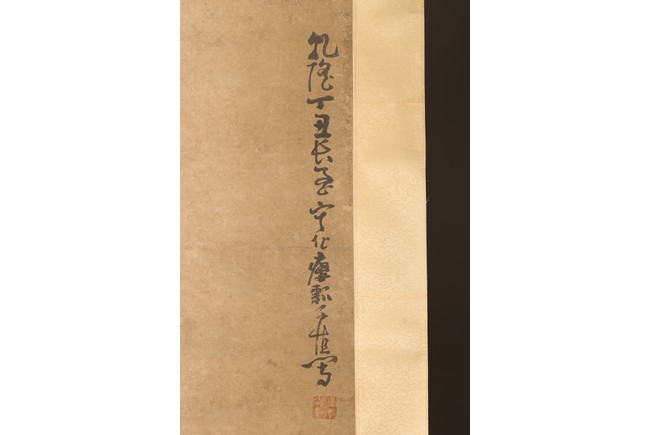 乾隆丁丑長至寧化癭瓢子慎寫